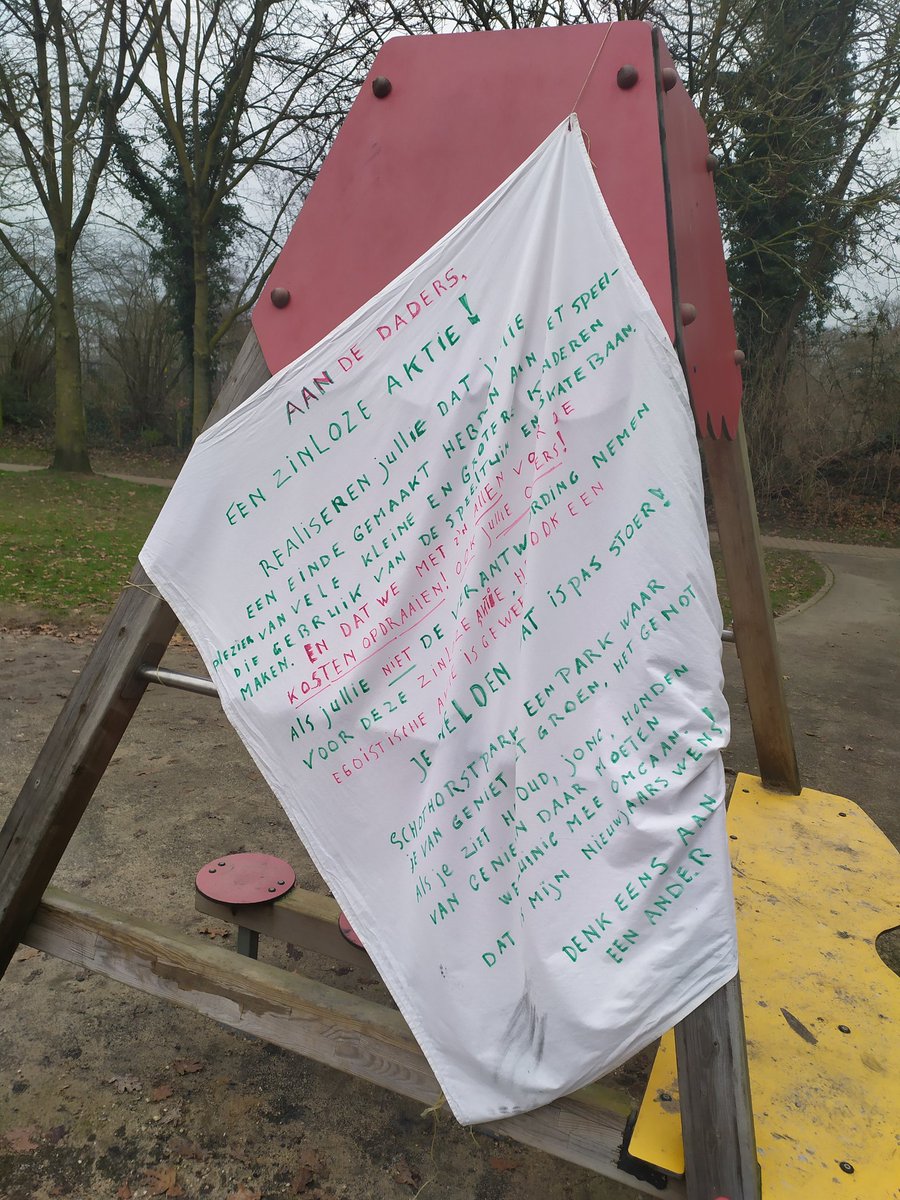 AAN DE DADERS,
EEN ZINLOZE AKTIE!
REALISEREN jullie DAT jullie ET SPEEL-
EEN EINDE GEMAAKT HEBBEN AAN
PLEZIER VAN VELE KLEINE EN GROTERE KINDEREN
DIE GEBRUIK VAN DE SPEELTUIN EN SKATEBAAN.
MAKEN. EN DAT WE MET Z'N ALLEN VOOR DE
KOSTEN OPDRAAIEN! OOK jullie OUDERS!
Als jullie NIET DE VERANTWOORDING NEMEN
VOOR DEZE ZINLOZE AKTIE H OOK EEN
EGOISTISCHE AKTIE IS GEWEE
JE MELDEN DAT IS PAS STOER!
SCHOTHORSTPARK EEN PARK WAAR
je VAN GENIET T GROEN, HET GENOT
Als je ZIET H OUD, JONG, HONDEN
VAN GENIE DAAR MOETEN
WE ZUINIG MEE OMGAAN,
DAT IS MIJN NIEUWJAARSWENS!
DENK EENS AAN
EEN ANDER